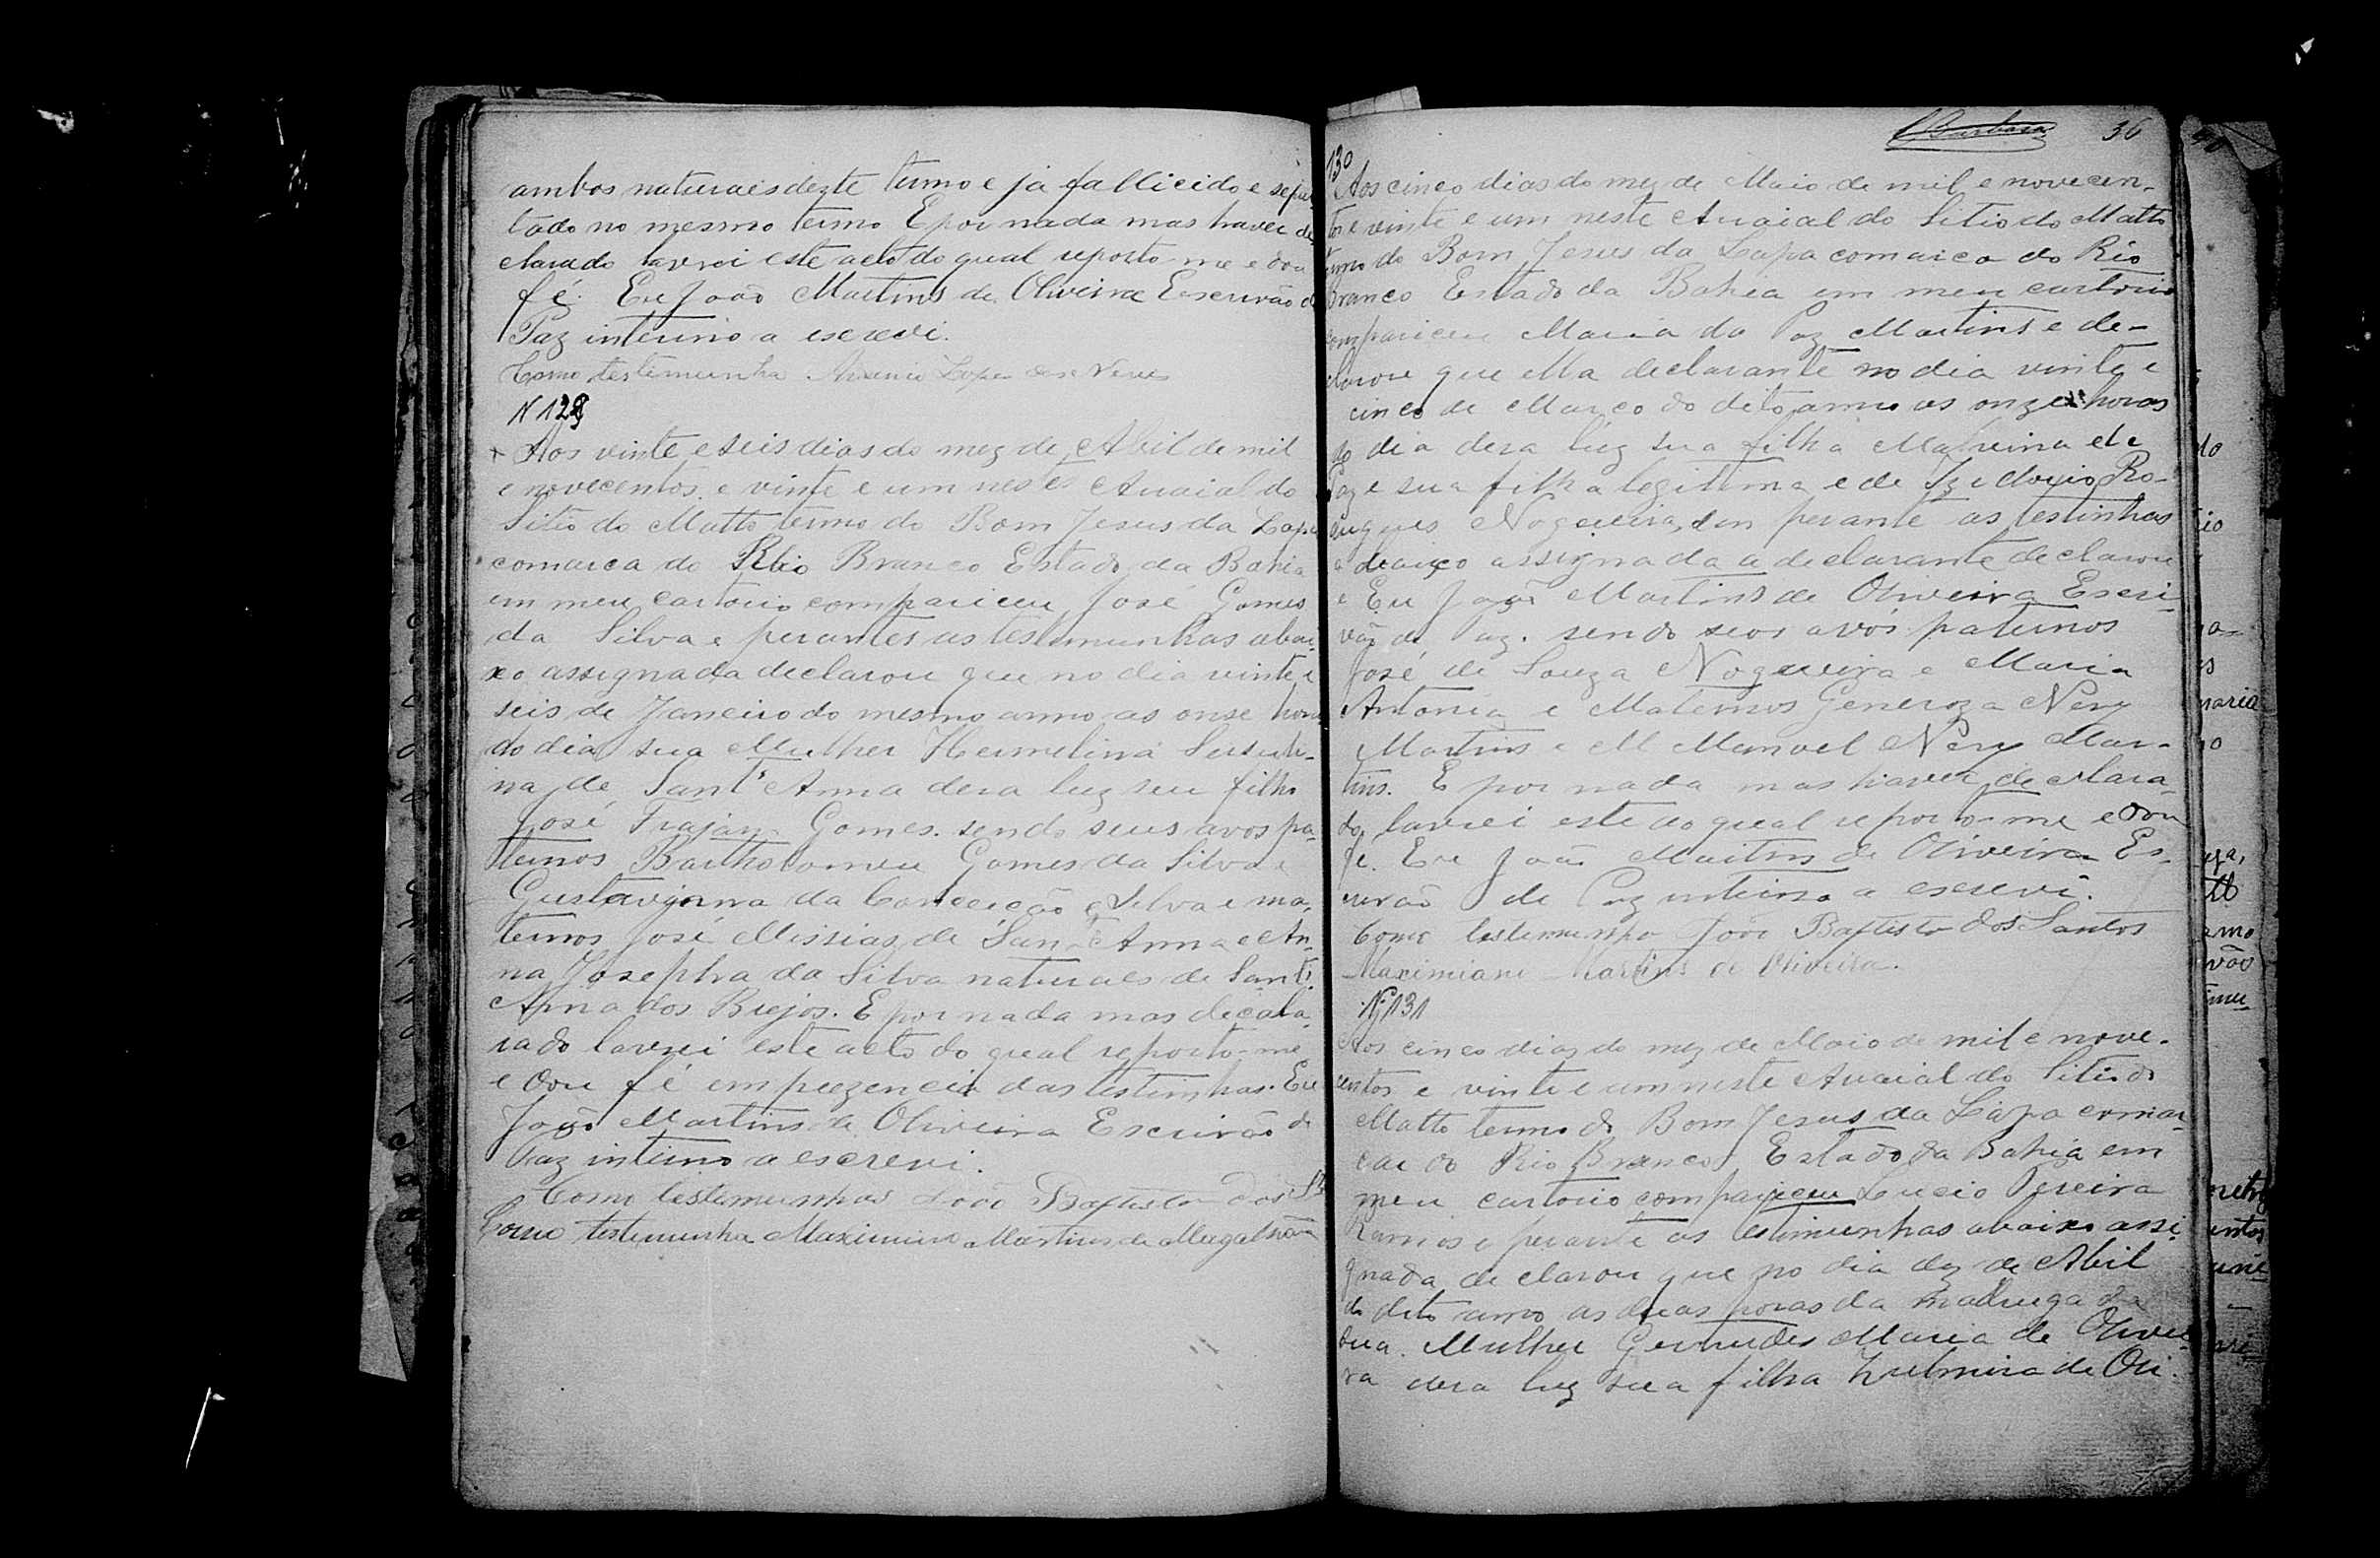 ambos naturaes dezte termo e já fallicido e sepul
tado no mesmo termo E por nada mas haver de
clarado lavrei este acto do qual reporto-me e dou
fé. Eu João Martins de Oliveira Escrivão de
Paz interino a escrevi.
Como testemunha Lopes das Neves
N 129
Aos vinte e seis dias do mez de Abril de mil
e novecentos e vinte e um nestes Arraial do
Sitio do Matto termo do Bom Jesus da Lapa
comarca do Rio Branco Estado da Bahia
em meu cartorio compariceu José Gomes
da Silva e perantes as testemunhas abai
xo assignada declarou que no dia vinte e
seis de Janeiro do mesmo anno as onse horas
do dia sua Mulher Hermelina
na de Sant'Anna dera luz seu filho
José Trajano Gomes. sendo seus avos pa-
ternos Bartholomeu Gomes da Silva e
da Conceição e Silva e ma-
ternos José Missias de Sant Anna e An-
na Josepha da Silva naturaes de Sant'
Anna dos Brejos. E por nada mas decala-
rado lavrei este acto do qual reporto-me
e dou fé em prezencia das testinhas. Eu
João Martins de Oliveira Escrivão de
Paz interino a escrevi.
Como testemunhas João Baptista dos Stos
Como testemunha Maximiano Martins de Magalhães
Barbosa 36
130
Aos cinco dias do mez de Maio de mil e novecen-
tos e vinte e um neste Arraial do Sitio do Matto
termo do Bom Jesus da Lapa comarca do Rio
Branco Estado da Bahia em meu cartorio
compariceu Maria da Paz Martins e de-
clarou que ella declarante no dia vinte e
cinco de Março do dito anno as onze horas
do dia dera luz sua filha Malvina de
Paz e sua filha legitima e de Izidorio Ro-
drigues Nogueira, em perante as testinhas
a abaixo assignada a declarante declarou
e Eu João Martins de Oliveira Escri-
vão de Paz. sendo seos avós paternos
José de Souza Nogueira e Maria
Antonia e Maternos Generoza Nery
Martins e M Manoel Nery Mar-
tins. E por nada mas haver declara-
do, lavrei este do qual reporto-me e dou
fé. Eu João Martins de Oliveira Es-
crivão de Paz interino a escrevi.
Como testemunha João Baptista dos Santos
Maximiano Martins de Oliveira.
Nº 131
Aos cinco dias do mez de Maio de mil e nove-
centos e vinte e um neste Arraial do Sitio do
Matto termo do Bom Jesus da Lapa comar-
cae do Rio Branco, Estado da Bahia em
meu cartorio compariceu Lucio Pereira
Ramos e perante as testimunhas abaixo assi-
gnada declarou que no dia dez de Abril
do dito anno as duas horas da madrugada
sua Mulher Gertrudes Maria de Olivei-
ra dera luz sua filha Zulmira de Oli-